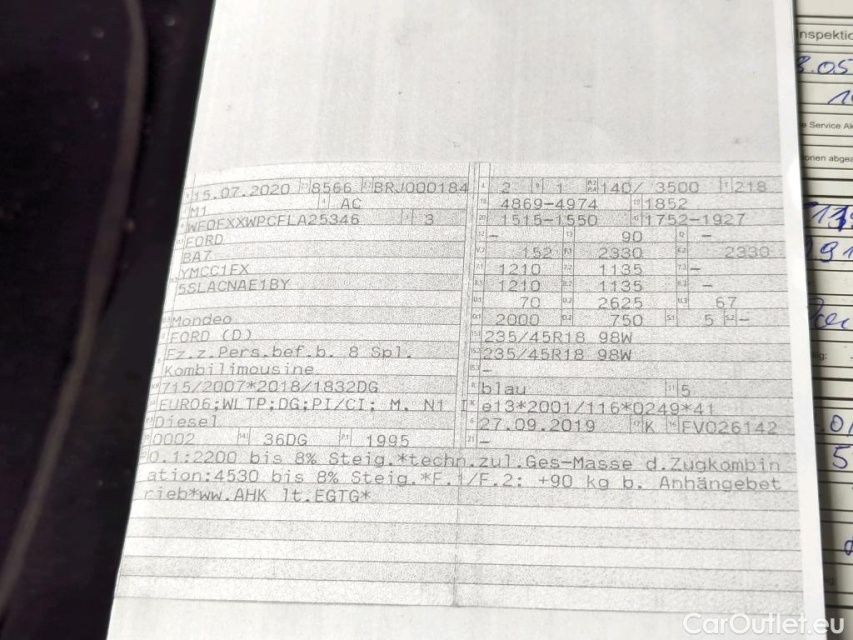 15.07.2020 8566 BRJ000184 2 1 140/ 3500 218
M1 AC 4869-4974 1852
WF0EXXWPCFLA25346 3 1515-1550 1752-1927
FORD - 90 -
BA7 152 2330 2330
YMCC1FX 1210 1135 -
5SLACNAE1BY 1210 1135 -
70 2625 67
Mondeo 2000 750 5 -
FORD (D) 235/45R18 98W
Fz.z.Pers.bef.b. 8 Spl. 235/45R18 98W
Kombilimousine -
715/2007*2018/1832DG blau 5
EURO6;WLTP;DG;PI/CI; M, N1 I e13*2001/116*0249*41
Diesel 27.09.2019 K FV026142
0002 36DG 1995 -
O.1:2200 bis 8% Steig.*techn.zul.Ges-Masse d.Zugkombin
ation:4530 bis 8% Steig.*F.1/F.2: +90 kg b. Anhängebet
rieb*ww.AHK lt.EGTG*
Service
CarOutlet.eu